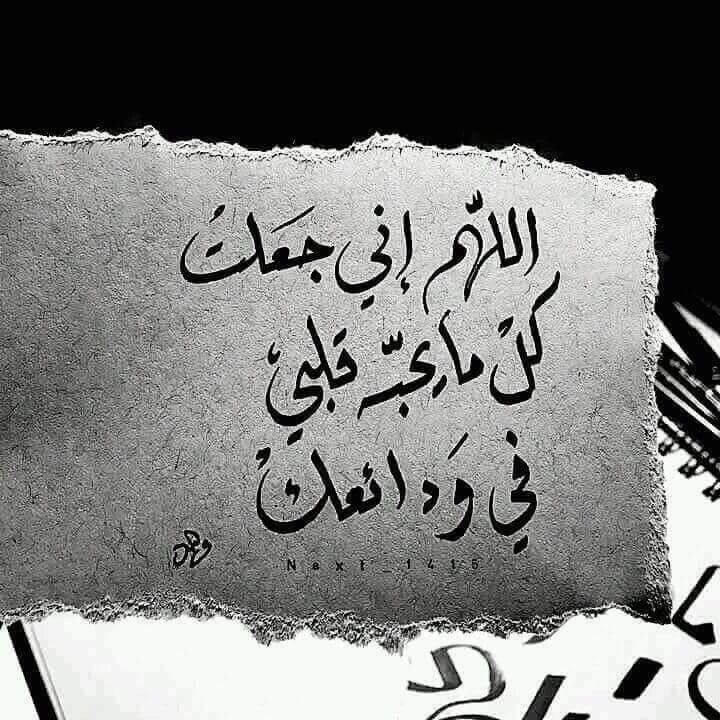 اللّهم إني جَعَلتُ
كلْ ما يحبّه قلبيْ
في وَدائعكْ
Next_1415